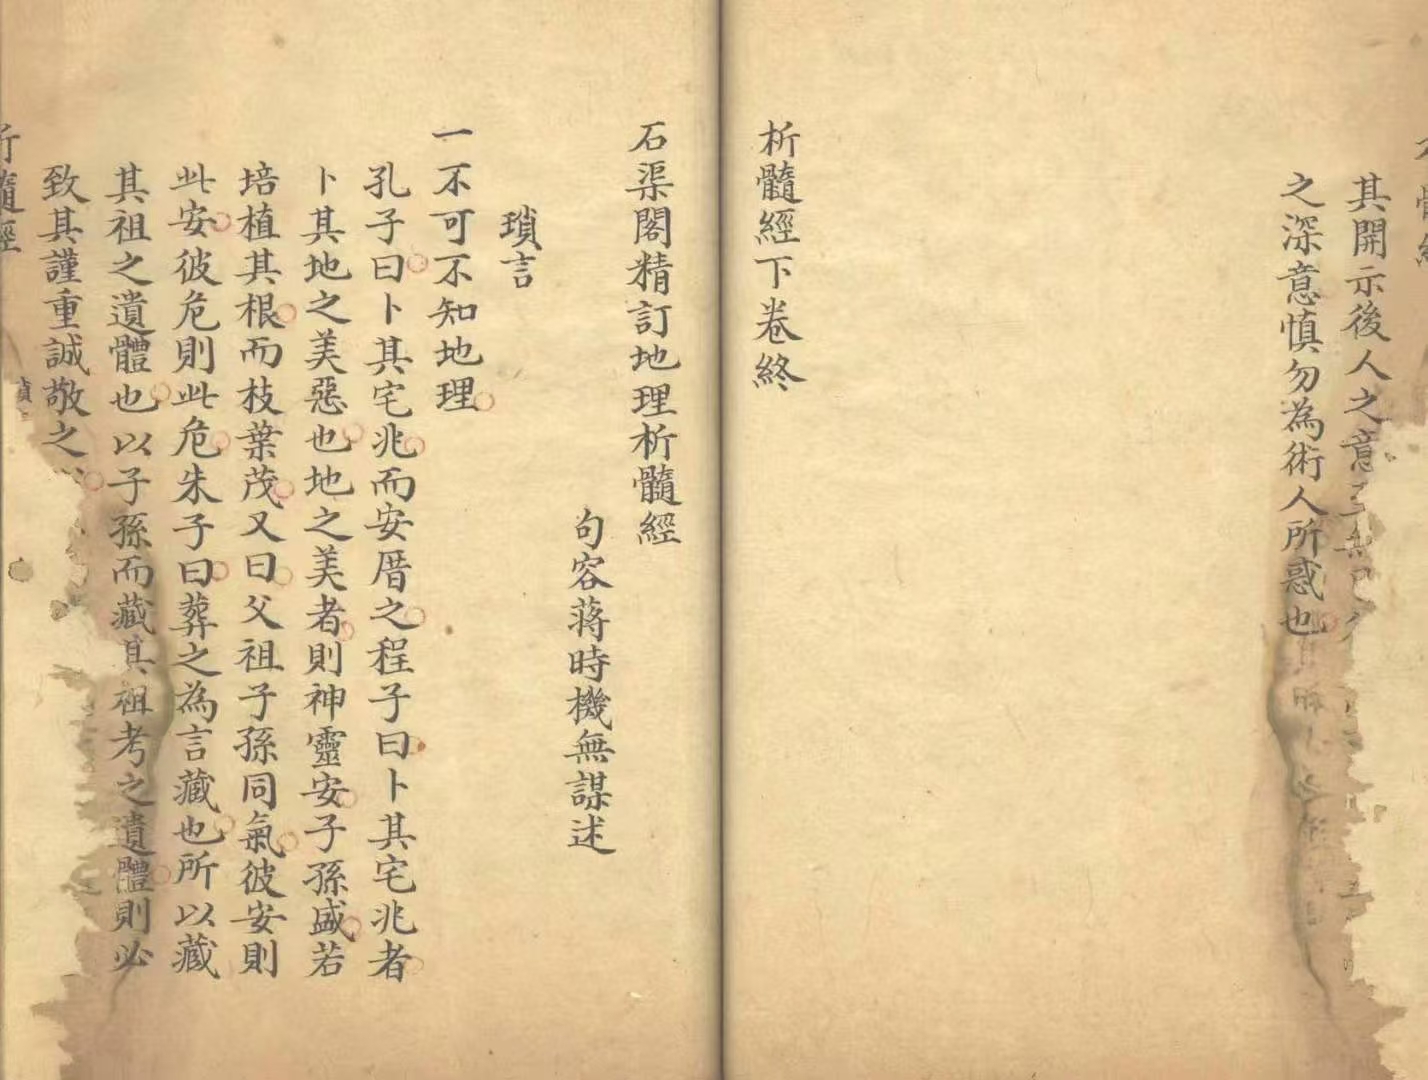 其開示後人之意
之深意慎勿為術人所惑也
析髓經下卷終
石渠閣精訂地理析髓經
句容蔣時機無謀述
瑣言
一不可不知地理
孔子曰卜其宅兆而安厝之程子曰卜其宅兆者
卜其地之美惡也地之美者則神靈安子孫盛若
培植其根而枝葉茂又曰父祖子孫同氣彼安則
此安彼危則此危朱子曰葬之為言藏也所以藏
其祖之遺體也以子孫而藏其祖考之遺體則必
致其謹重誠敬之